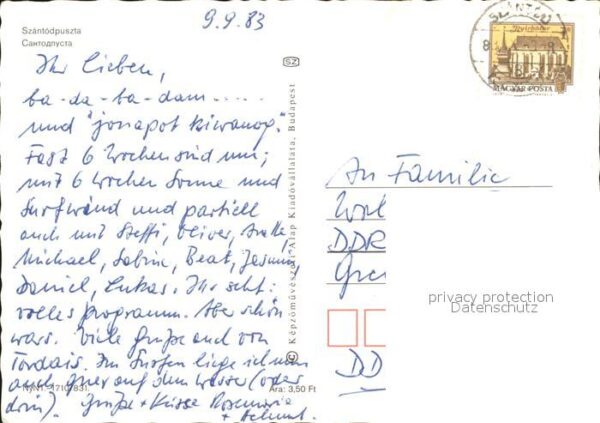 9.9.83
Szántódpuszta
Сантодпуста
SZ
Ihr Lieben,
ba-da-ba-dam.....
und "jonapot kiwanog."
Fast 6 Wochen sind um;
mit 6 Wochen Sonne und
Surfwind und partiell
auch mit Steffi, Oliver,
Michael, Sabine, Beat, Jasmin,
Daniel, Lukas. Ihr seht:
volles Programm. Aber schön
wars. Viele Grüße auch von
Tordais. Im Surfen liege ich nun
auch quer auf dem Wasser (oder
drin). Grüße + Küsse Rosemarie
+ Helmut.
Ára: 3,50 Ft
© Képzőművészeti Alap Kiadóvállalata, Budapest
SZÁNTÓD
Nyírbátor
MAGYAR POSTA
An Familie
DDR
DD
privacy protection
Datenschutz